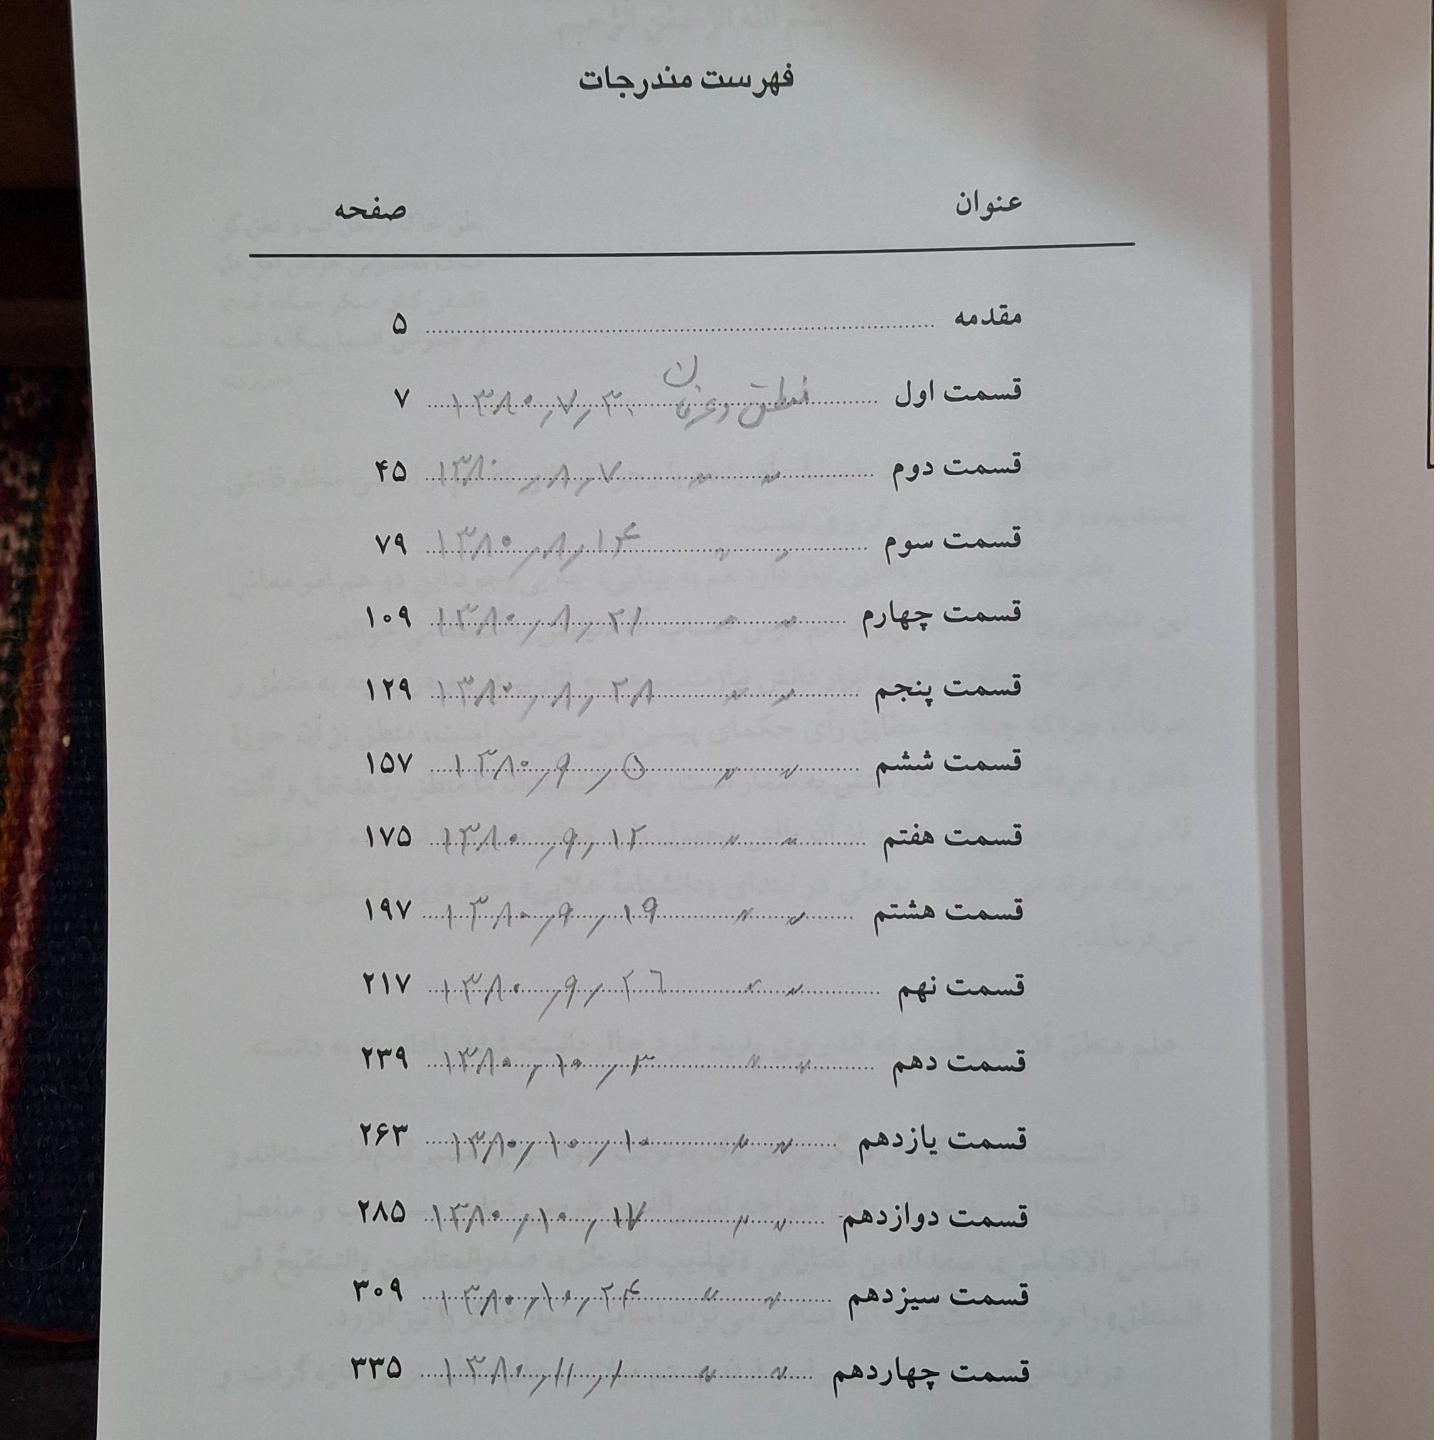 فهرست مندرجات
عنوان صفحه
مقدمه ........ ۵
قسمت اول ........ منطق و عرفان ۱۳۸۰/۷/۳۰ ........ ۷
قسمت دوم ........ 〃 〃 ۱۳۸۰/۸/۷ ........ ۴۵
قسمت سوم ........ 〃 〃 ۱۳۸۰/۸/۱۴ ........ ۷۹
قسمت چهارم ........ 〃 〃 ۱۳۸۰/۸/۲۱ ........ ۱۰۹
قسمت پنجم ........ 〃 〃 ۱۳۸۰/۸/۲۸ ........ ۱۲۹
قسمت ششم ........ 〃 〃 ۱۳۸۰/۹/۵ ........ ۱۵۷
قسمت هفتم ........ 〃 〃 ۱۳۸۰/۹/۱۲ ........ ۱۷۵
قسمت هشتم ........ 〃 〃 ۱۳۸۰/۹/۱۹ ........ ۱۹۷
قسمت نهم ........ 〃 〃 ۱۳۸۰/۹/۲۶ ........ ۲۱۷
قسمت دهم ........ 〃 〃 ۱۳۸۰/۱۰/۳ ........ ۲۳۹
قسمت یازدهم ........ 〃 〃 ۱۳۸۰/۱۰/۱۰ ........ ۲۶۳
قسمت دوازدهم ........ 〃 〃 ۱۳۸۰/۱۰/۱۷ ........ ۲۸۵
قسمت سیزدهم ........ 〃 〃 ۱۳۸۰/۱۰/۲۴ ........ ۳۰۹
قسمت چهاردهم ........ 〃 〃 ۱۳۸۰/۱۱/۱ ........ ۳۳۵